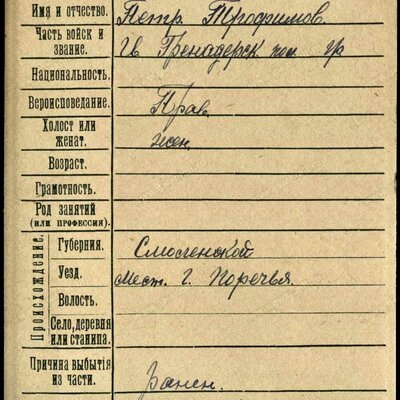 Имя и отчество. Петр Трофимов.
Часть войск и
звание. Гв. Гренадерск. пол. гр
Национальность.
Вероисповедание. Прав.
Холост или
женат. жен.
Возраст.
Грамотность.
Род занятий
(или профессия).
Происхождение.
Губерния. Смоленской
Уезд. мест. г. Поречья.
Волость.
Село, деревня
или станица.
Причина выбытія
из части. Ранен.